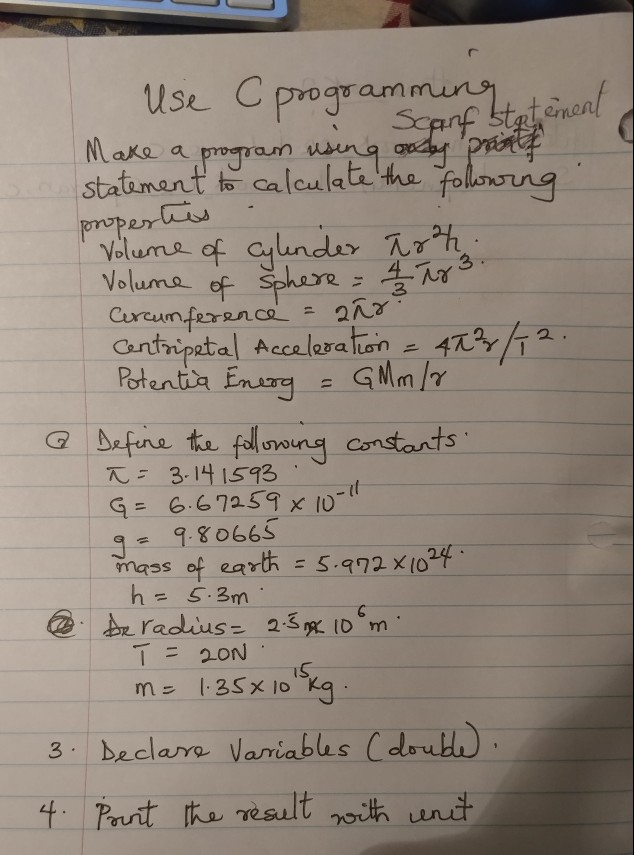 Use C programming
Scanf statement
Make a program using only printf
statement to calculate the following
properties
Volume of cylinder πr²h.
Volume of sphere = 4/3 πr³.
Circumference = 2πr.
Centripetal Acceleration = 4π²r/T².
Potentia Energ = GMm/r
② Define the following constants.
π = 3.141593
G = 6.67259 x 10⁻¹¹
g = 9.80665
mass of earth = 5.972 x 10²⁴.
h = 5.3m.
radius = 2.5 x 10⁶ m.
T = 20N.
m = 1.35 x 10¹⁵ kg.
3. Declare Variables (double).
4. Print the result with unit